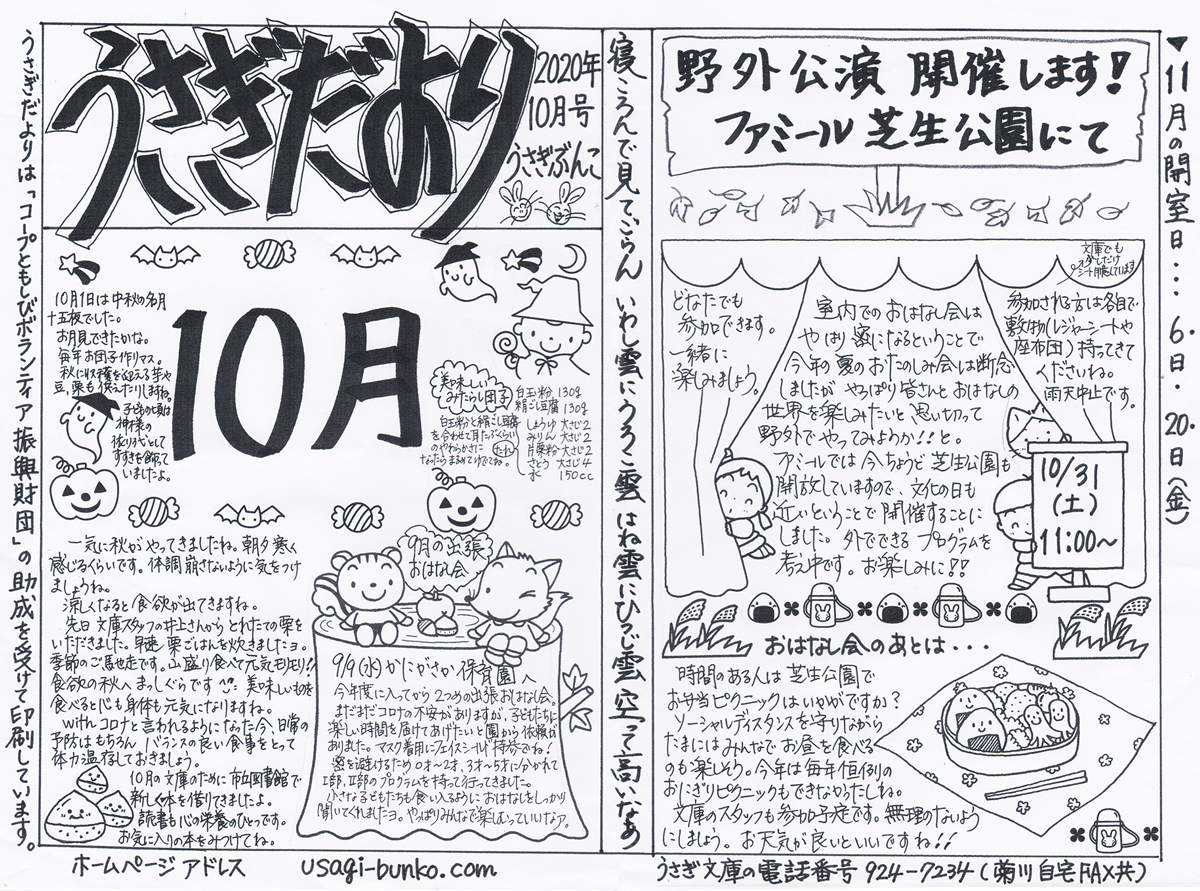 うさぎだより
2020年
10月号
うさぎぶんこ
うさぎだよりは「コープともしびボランティア振興財団」の助成を受けて印刷しています。
10月
10月1日は中秋の名月
十五夜でした。
お月見できたかな。
毎年お団子作りマス。
秋に収穫を迎える芋や
豆、栗も供えたりしますね。
子どもの頃は
神様の
依り代として
すすきを飾って
いましたよ。
美味しい
みたらし団子
白玉粉 130g
絹ごし豆腐 130g
しょうゆ 大さじ2
みりん 大さじ2
片栗粉 大さじ2
さとう 大さじ4
水 150cc
たれ
白玉粉と絹ごし豆腐
を合わせて耳たぶくらい
のやわらかさに
なったらまるめてゆでてね。
一気に秋がやってきましたね。朝夕寒く
感じるぐらいです。体調崩さないように気をつけ
ましょうね。
涼しくなると食欲が出てきますね。
先日文庫スタッフの井上さんからとれたての栗を
いただきました。早速栗ごはんを炊きましたヨ。
季節のご馬也走です。山盛り食べて元気モリモリ!!
食欲の秋へまっしぐらです 美味しいものを
食べると心も身体も元気になりますね。
withコロナと言われるようになった今、日常の
予防はもちろん バランスの良い食事をとって
体力温存しておきましょう。
10月の文庫のために市立図書館で
新しく本を借りてきましたよ。
読書も心の栄養のひとつです。
お気に入りの本をみつけてね。
9月の出張
おはなし会
9/9(水)かにがさか保育園へ
今年度に入ってから2つめの出張おはなし会。
まだまだコロナの不安がありますが、子どもたちに
楽しい時間を届けてあげたいと園から依頼
がありました。マスク着用にフェイスシールド持参でね!
密を避けるため0才〜2才、3才〜5才に分かれて
I部、II部のプログラムを持って行ってきました。
小さな子どもたちも食い入るようにおはなしをしっかり
聞いてくれましたヨ。やっぱりみんなで楽しむっていいなア。
ホームページアドレス usagi-bunko.com
寝ころんで見てごらん いわし雲にうろこ雲 はね雲にひつじ雲 空って高いなぁ
野外公演 開催します!
ファミール芝生公園にて
どなたでも
参加できます。
一緒に
楽しみましょう。
室内でのおはなし会は
やはり密になるということで
今年の夏のおたのしみ会は断念
しましたが やっぱり皆さんとおはなしの
世界を楽しみたいと思い切って
野外でやってみようか!!と。
ファミールでは今ちょうど芝生公園も
開放していますので、文化の日も
近いということで開催することに
しました。外でできるプログラムを
考え中です。お楽しみに!!
文庫でも
少しだけ
シート用意しています
参加される方は各自で
敷物(レジャーシートや
座布団)持ってきて
くださいね。
雨天中止です。
10/31
(土)
11:00〜
おはなし会のあとは・・・
時間のある人は芝生公園で
お弁当ピクニックはいかがですか?
ソーシャルディスタンスを守りながら
たまにはみんなでお昼を食べる
のも楽しそう。今年は毎年恒例の
おにぎりピクニックもできなかったしね。
文庫のスタッフも参加予定です。無理のないよう
にしましょう。お天気が良いといいですね!!
うさぎ文庫の電話番号 924-7234(菊川自宅FAX共)
▼11月の開室日・・・6日・20日(金)